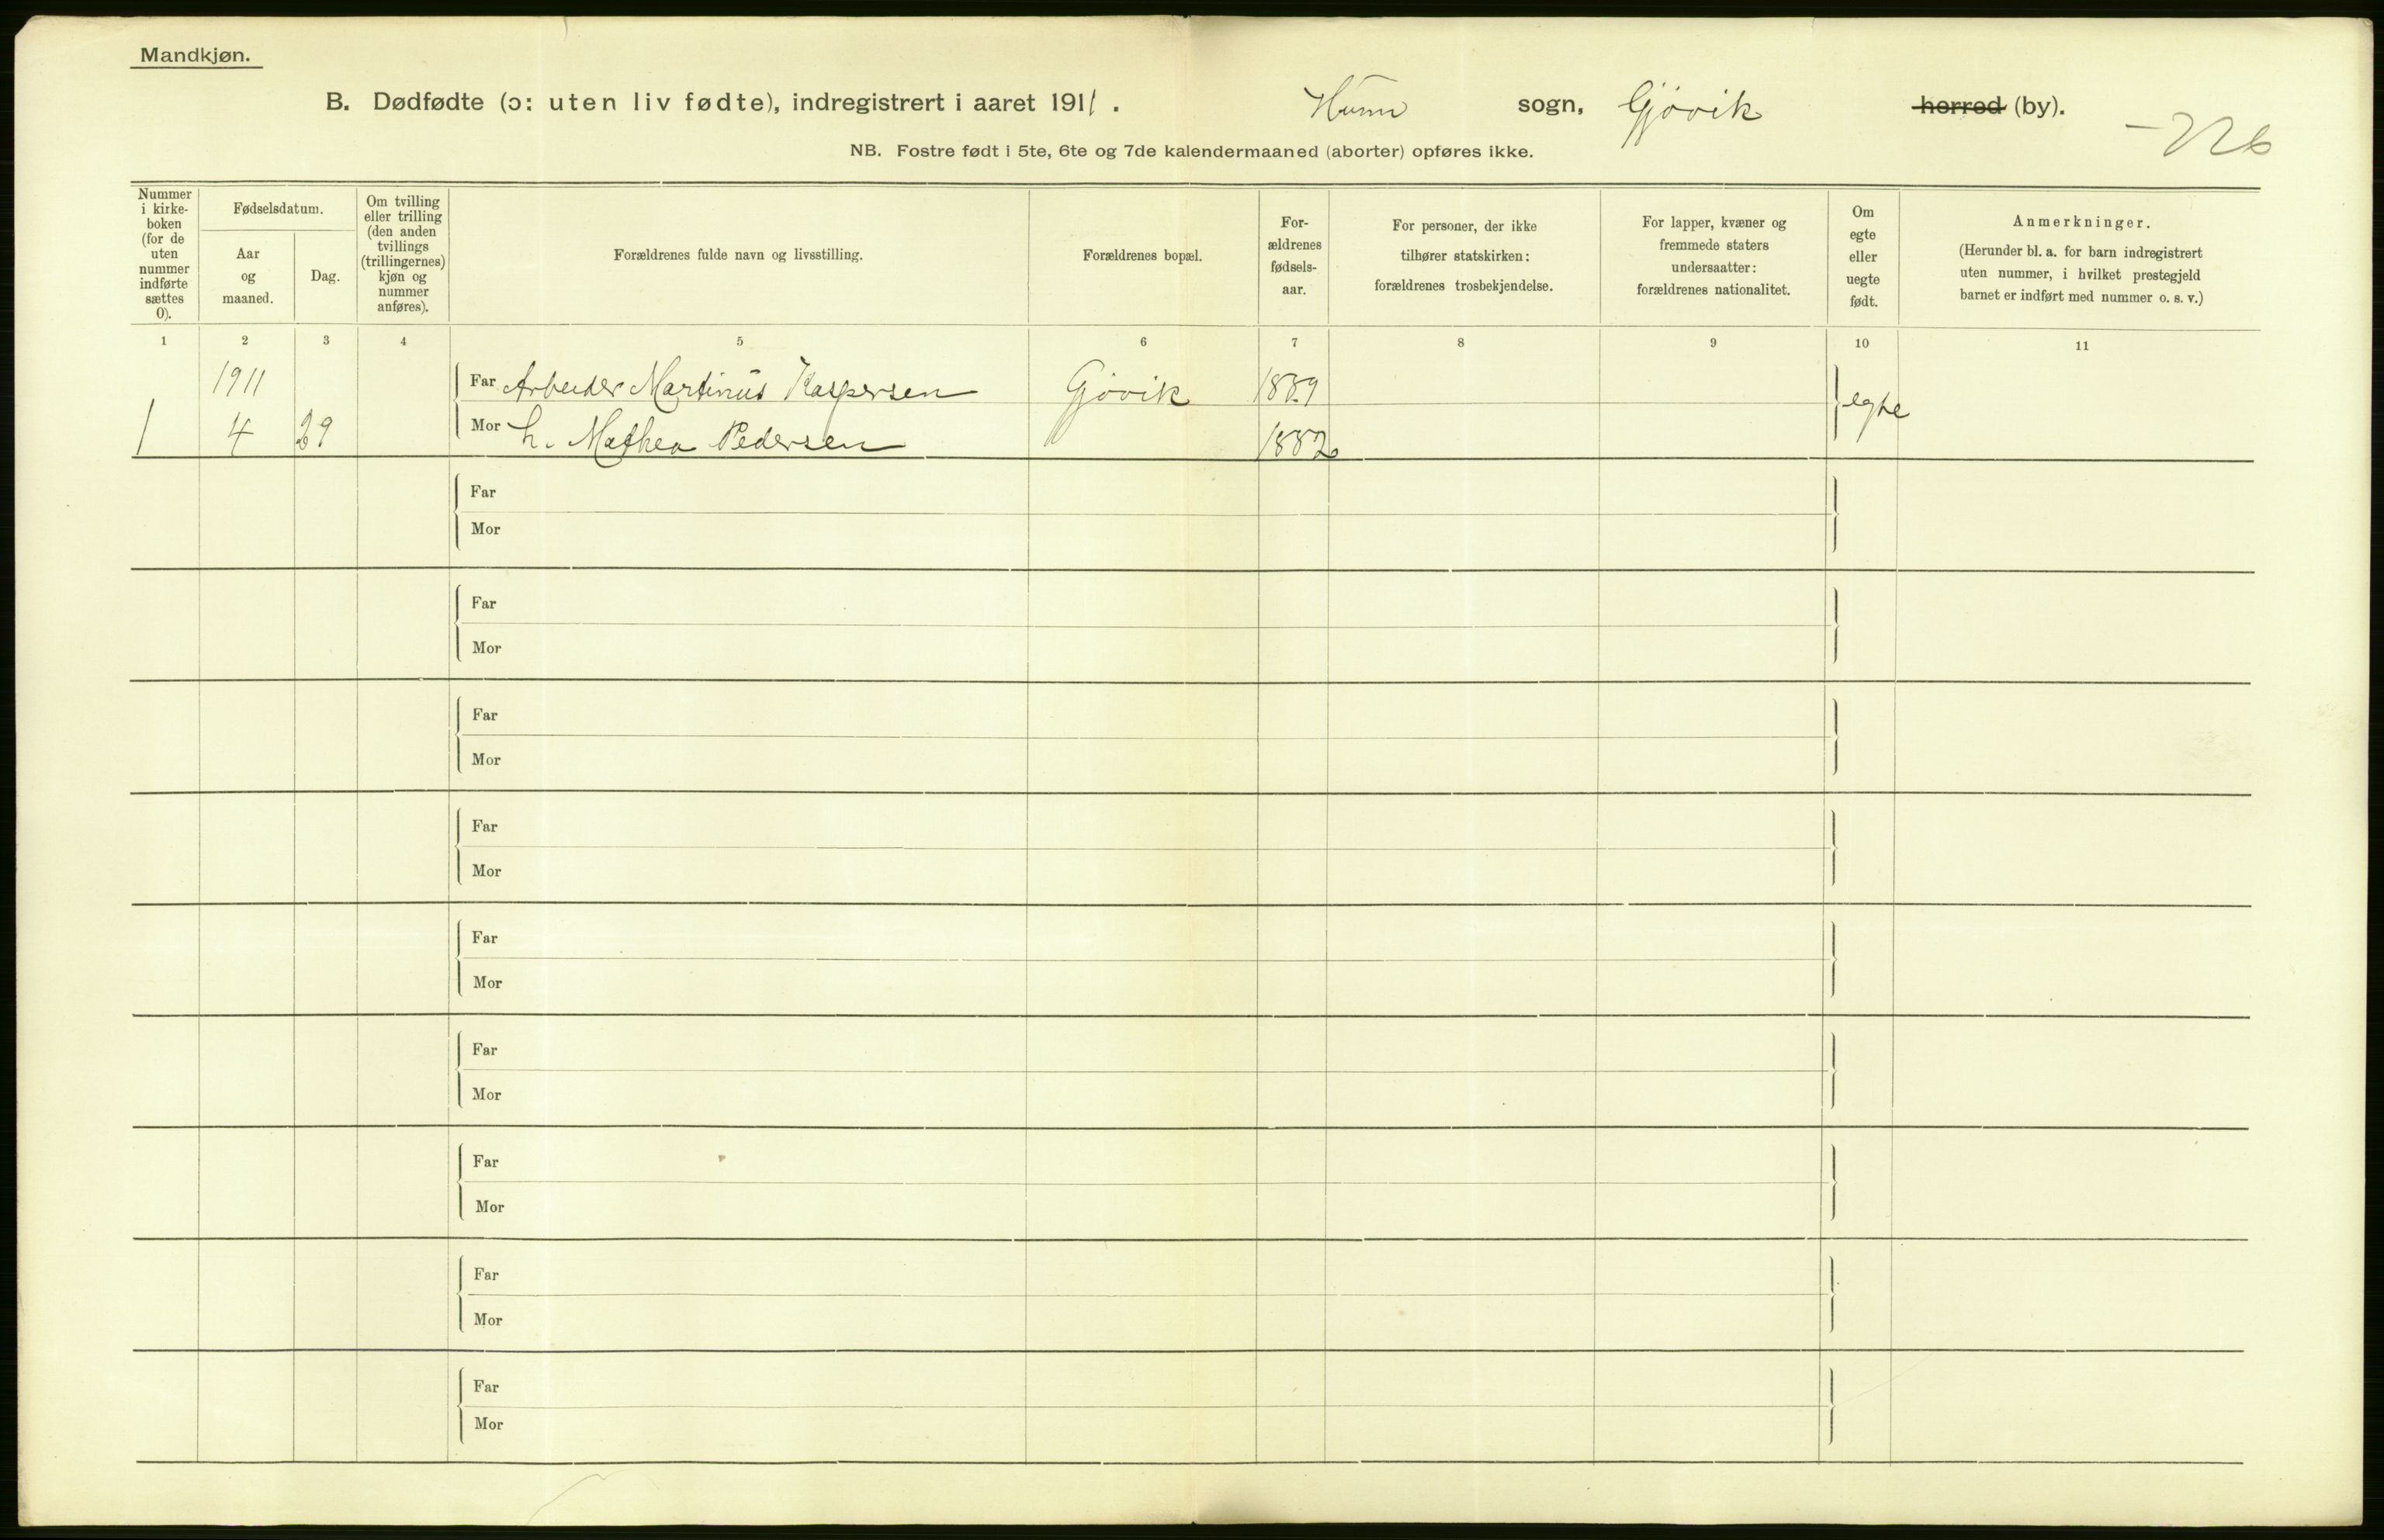 Mandkjøn.
B. Dødfødte (ɔ: uten liv fødte), indregistrert i aaret 1911. Hunn sogn, Gjövik herred (by).
NB. Fostre født i 5te, 6te og 7de kalendermaaned (aborter) opføres ikke.
-226
Nummer
i kirke-
boken
(for de
uten
nummer
indførte
sættes
0).
Fødselsdatum.
Aar
og
maaned.
Dag.
Om tvilling
eller trilling
(den anden
tvillings
(trillingernes)
kjøn og
nummer
anføres).
Forældrenes fulde navn og livsstilling.
Forældrenes bopæl.
For-
ældrenes
fødsels-
aar.
For personer, der ikke
tilhører statskirken:
forældrenes trosbekjendelse.
For lapper, kvæner og
fremmede staters
undersaatter:
forældrenes nationalitet.
Om
egte
eller
uegte
født.
Anmerkninger.
(Herunder bl. a. for barn indregistrert
uten nummer, i hvilket prestegjeld
barnet er indført med nummer o. s. v.)
1 2 3 4 5 6 7 8 9 10 11
1911 Far Arbeider Martinus Kaspersen Gjövik 1889 egte
1 4 29 Mor h. Mathea Pedersen 1882
Far
Mor
Far
Mor
Far
Mor
Far
Mor
Far
Mor
Far
Mor
Far
Mor
Far
Mor
Far
Mor